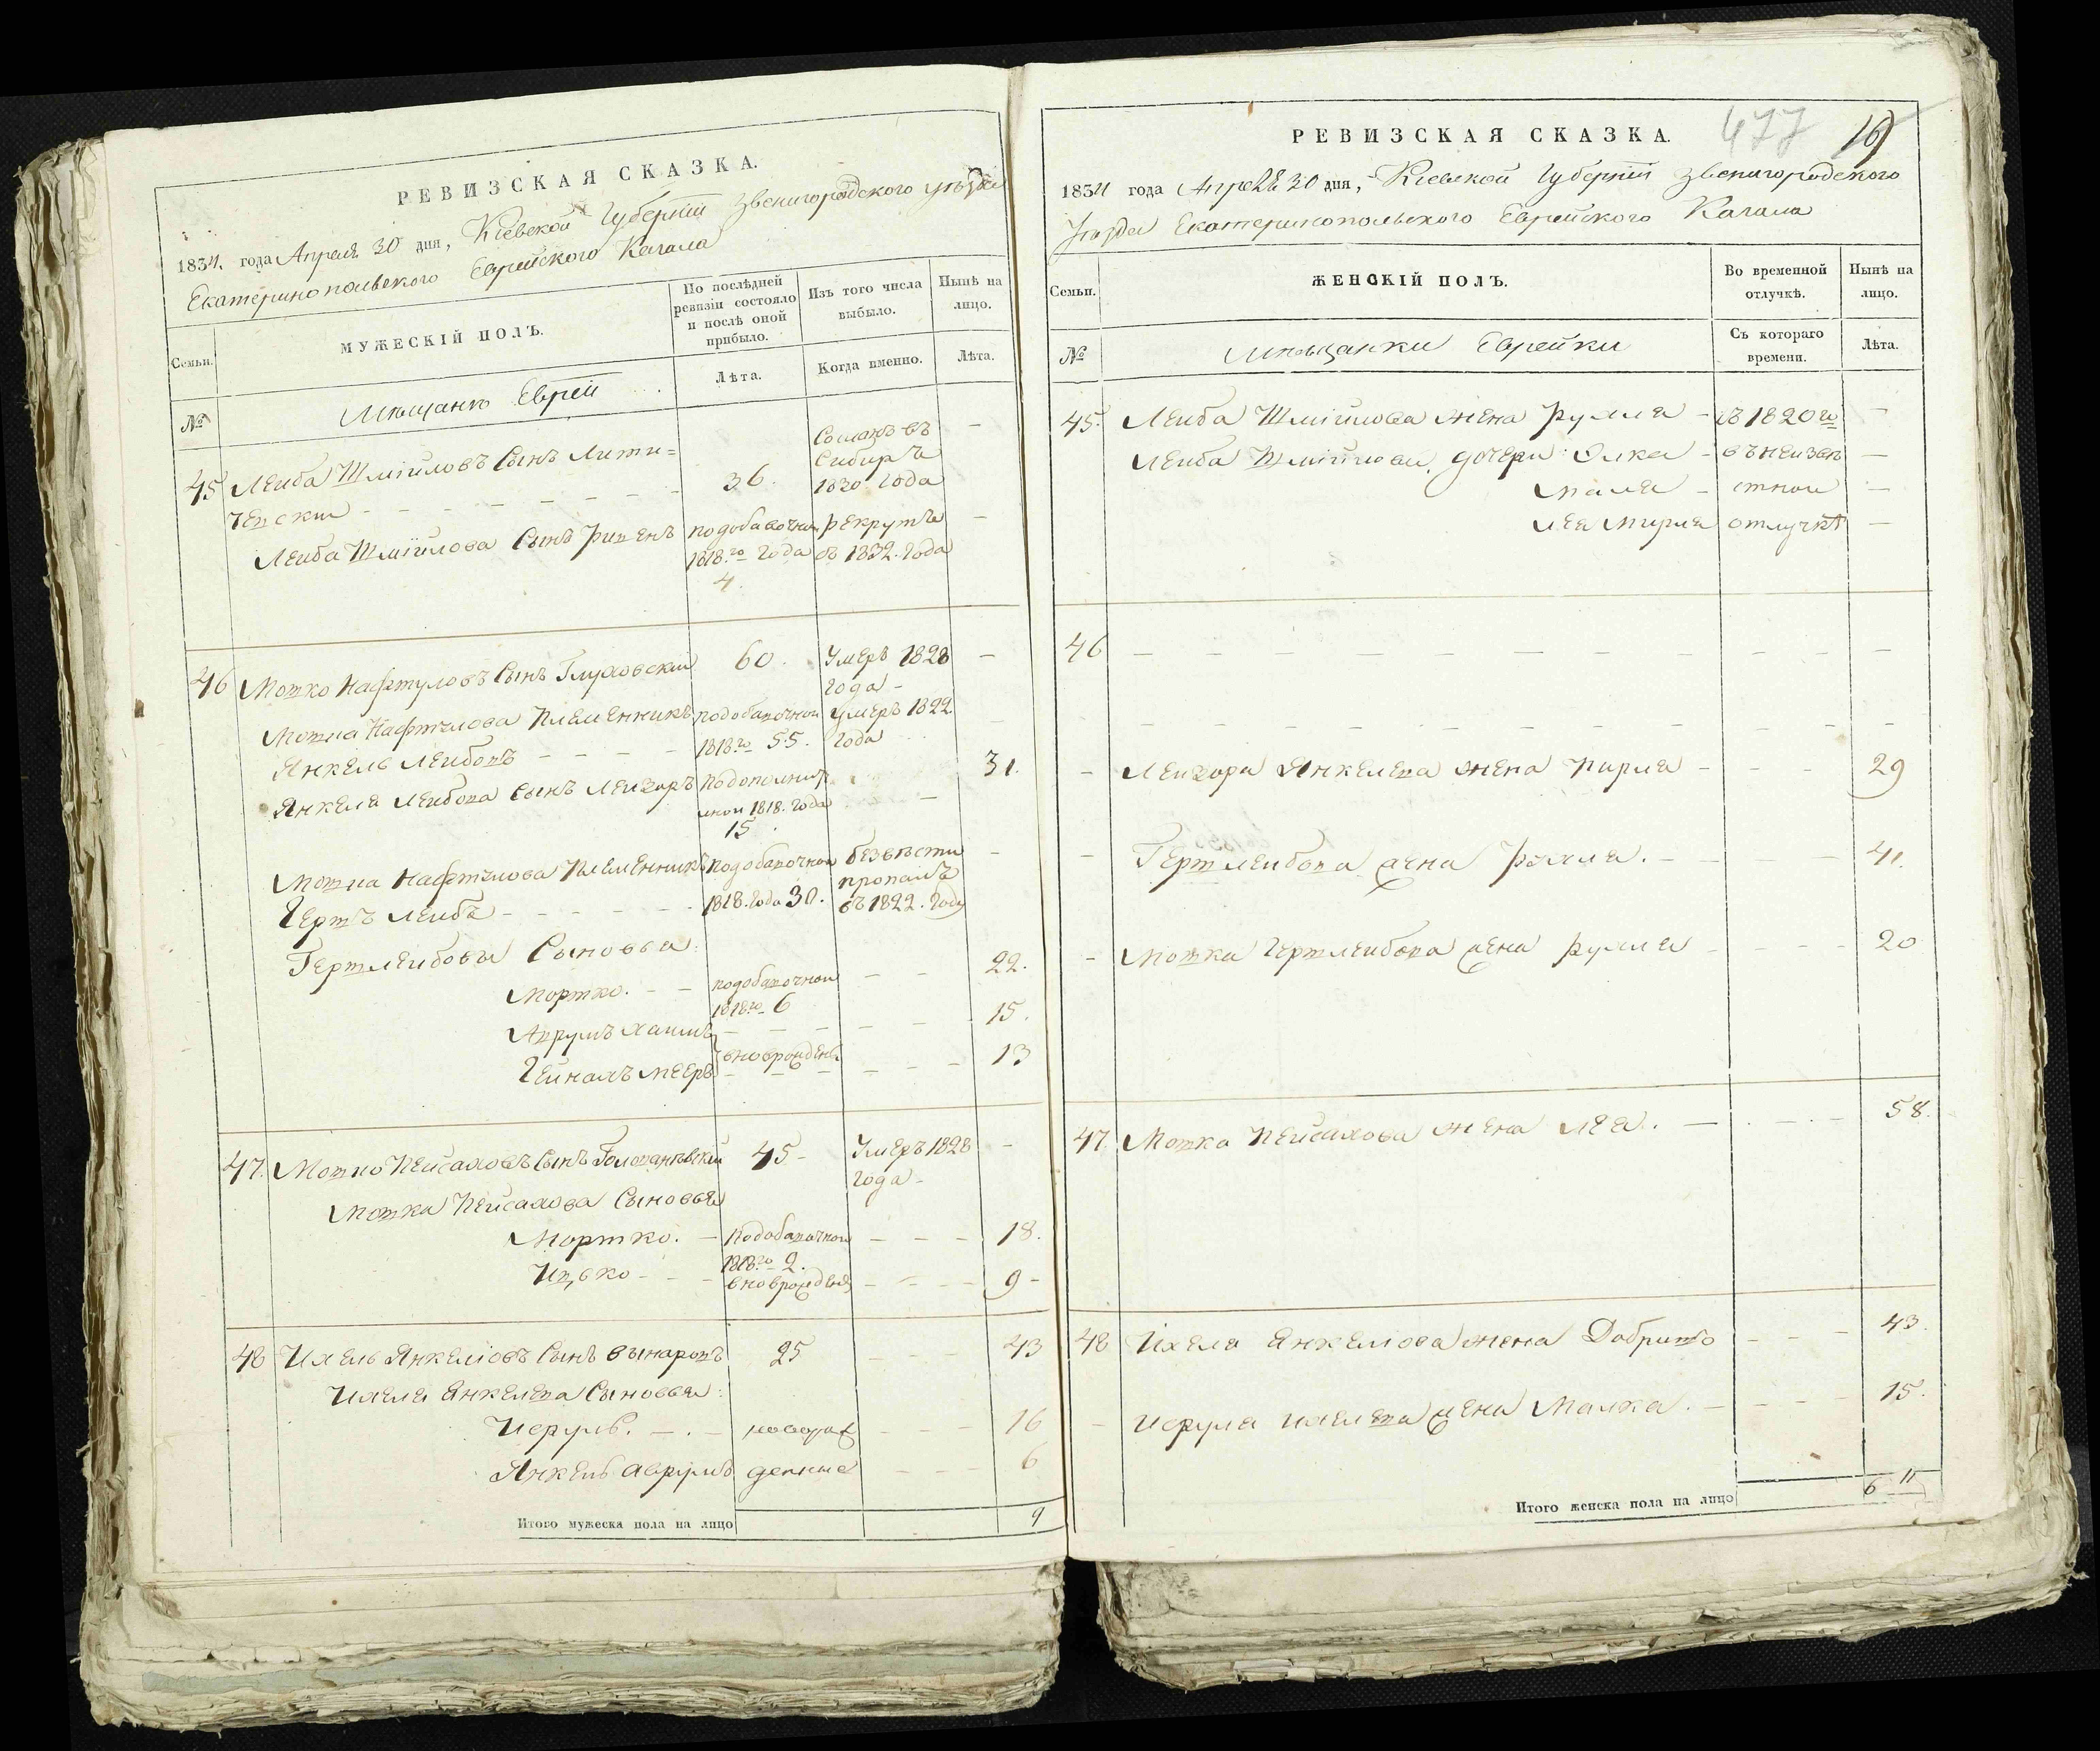 РЕВИЗСКАЯ СКАЗКА.
1834. года Апреля 30 дня, Кіевской Губерніи Звенигородского уѣзда
Екатеринопольского Еврейского Кагала
Семьи.
МУЖЕСКІЙ ПОЛЪ.
По послѣдней ревизіи состояло и послѣ оной прибыло.
Изъ того числа выбыло.
Нынѣ на лицо.
№
Мѣщанъ Еврей
Лѣта.
Когда именно.
Лѣта.
45 Лейба Шміиловъ Сынъ Лити=
чевскии - - - 36. Сосланъ въ Сибиръ 1830 года -
Лейба Шміилова Сынъ подобавочной 1818.го года 4. рекрутъ въ 1832. года -
46 Мошко Нафтуловъ Сынъ Глуховскии 60. Умеръ 1828 года - -
Мошка Нафтулова Племенникъ подобавочной 1818.го 55. Умеръ 1822. года
Янкель Лейбовъ - - - -
Янкеля Лейбова Сынъ Лейзоръ 1818. года 15. 31.
Мошка Нафтулова Племенникъ подобавочной 1818. года 30. безвѣсти пропалъ въ 1822. году -
Гершъ Лейбъ - - - -
Гершлейбовы Сыновья:
Мортко. - - подобавочной 1818го 6 - - 22.
Аврумъ Хаимъ - - - 15.
Мееръ вноврожденъ - - - 13
47. Мошко Пейсаховъ Сынъ 45- Умеръ 1828 года - -
Мошка Пейсахова Сыновья
Мортко. - подобавочной 1818.го 2. - - - 18.
Ицько - - - вноврожденъ - - - 9 -
48 Ихель Янкеліовъ Сынъ 25 - - 43
Ихеля Янкелева Сыновья:
Исруль. - . - новорож - - - 16
Янкель Аврумъ денные - - 6
Итого мужеска пола на лицо 9
РЕВИЗСКАЯ СКАЗКА.
477
16
1834 года Апреля 30 дня, Кіевской Губерніи Звенигородского
Уѣзда Екатеринопольского Еврейского Кагала
Семьи.
ЖЕНСКІЙ ПОЛЪ.
Во временной отлучкѣ.
Нынѣ на лицо.
№
Мѣщанки Еврейки
Съ котораго времени.
Лѣта.
45. Лейба Шміилова жена Рухля - съ 1820го -
Лейба Шміилова дочери: Элка - въ неизвѣ -
Маля - стной -
Лея Мирля отлучкѣ -
46 - - - - - - - - - -
- - - - - - - - - -
- Лейзора Янкелева жена Пирля - - - 29
- Гершлейбова жена Рохля. - - - 41.
- Мошка Гершлейбова жена Рухля - - - - 20
47. Мошка Пейсахова жена Лея. - - . - . - 58.
48 Ихеля Янкеліова жена Добришъ - - - 43.
- Исруля Ихелева жена Малка. - - - - 15.
Итого женска пола на лицо 6